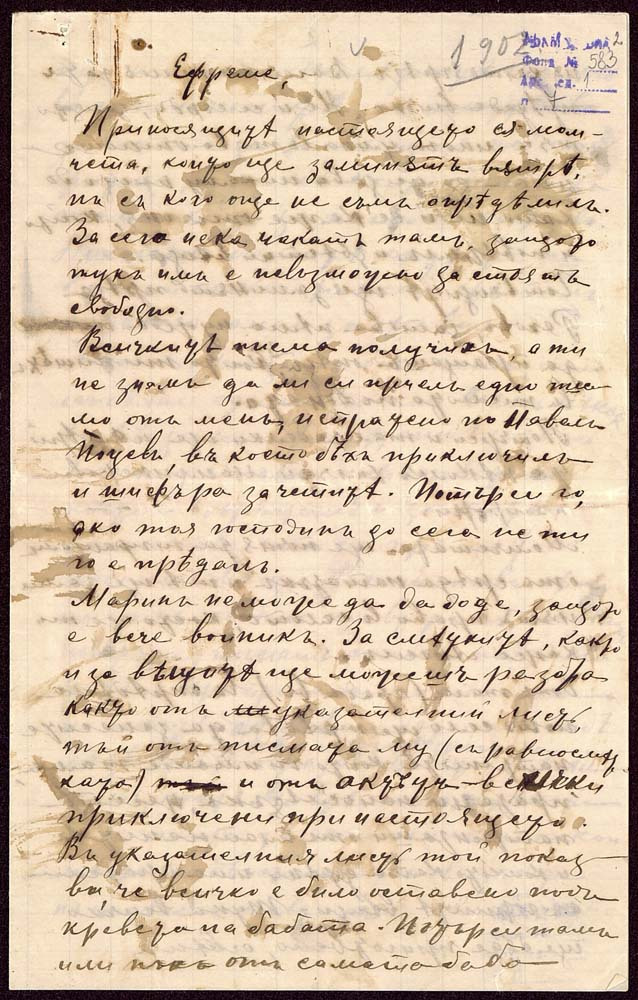 1902
2
Фондъ № 583
Арх. ед. 1
л. 7
Ефреме,
Приносящитѣ настоящето сѫ мом-
чета, които ще заминѫтъ вѫтрѣ,
но съ кого още не съмъ опрѣдѣлилъ.
За сега нека чакатъ тамъ, защото
тукъ имъ е невъзможно да стоятъ
свободно.
Всичкитѣ писма получихъ, а ти
не знамъ да ли си приелъ едно пис-
мо отъ мень, испратено по Павелъ
въ което бѣхъ приключилъ
и шифъра за четитѣ. Потърси го,
ако тоя господинъ до сега не ти
го е прѣдалъ.
Маринъ не може да да доде, защото
е вече войникъ. За смѣткитѣ, както
и за вѣщитѣ ще можешъ разбра
както отъ указателний листъ,
тъй отъ писмата му (съ равносмѣт-
ката) и отъ актътъ – всички
приключени при настоящето.
Въ указателния листъ той показ-
ва, че всичко е било оставено подъ
кревета на бабата. Потърси тамъ
или пъкъ отъ самата баба